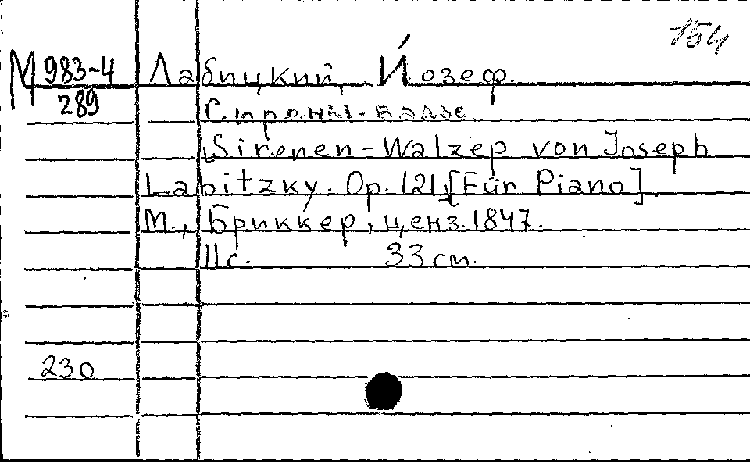 154
М 983-4 Лабицкий, Йозеф.
289 Сирены-вальс
Sirenen-Walzer von Joseph
Labitzky. Op. 121 [Für Piano]
М., Бриккер, ценз. 1847.
11 с. 33 см.
230